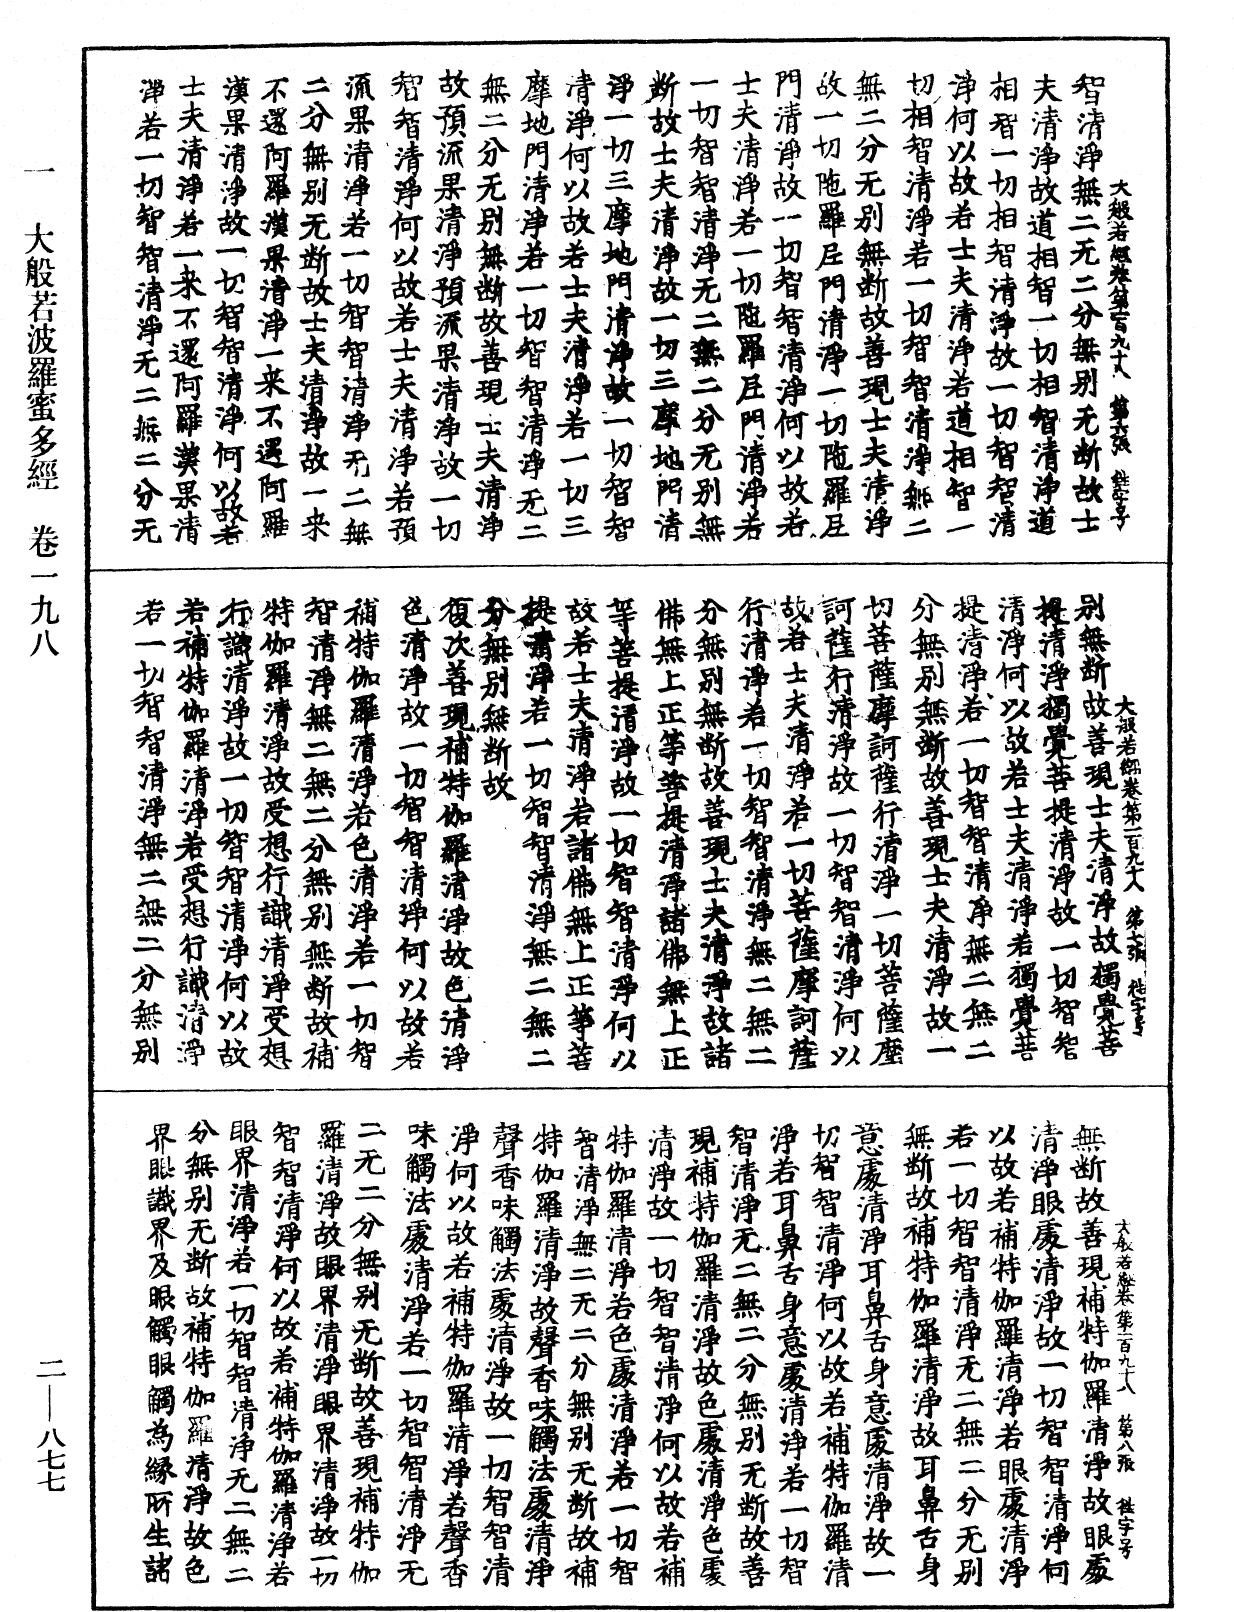 大般若經卷第一百九十八　第六張　㭍字号
智清淨無二无二分無別无断故士
夫清淨故道相智一切相智清淨道
相智一切相智清淨故一切智智清
淨何以故若士夫清淨若道相智一
切相智清淨若一切智智清淨無二
無二分无別無断故善現士夫清淨
故一切陁羅尼門清淨一切陁羅尼
門清淨故一切智智清淨何以故若
士夫清淨若一切陁羅尼門清淨若
一切智智清淨无二無二分无別無
断故士夫清淨故一切三摩地門清
淨一切三摩地門清淨故一切智智
清淨何以故若士夫清淨若一切三
摩地門清淨若一切智智清淨无二
無二分无別無断故善現士夫清淨
故預流果清淨預流果清淨故一切
智智清淨何以故若士夫清淨若預
流果清淨若一切智智清淨无二無
二分無別无断故士夫清淨故一来
不還阿羅漢果清淨一来不還阿羅
漢果清淨故一切智智清淨何以故若
士夫清淨若一来不還阿羅漢果清
淨若一切智智清淨无二無二分无
大般若經卷第一百九十八　第七張　字号
別無断故善現士夫清淨故獨覺菩
提清淨獨覺菩提清淨故一切智智
清淨何以故若士夫清淨若獨覺菩
提清淨若一切智智清淨無二無二
分無別無断故善現士夫清淨故一
切菩薩摩訶薩行清淨一切菩薩摩
訶薩行清淨故一切智智清淨何以
故若士夫清淨若一切菩薩摩訶薩
行清淨若一切智智清淨無二無二
分無別無断故善現士夫清淨故諸
佛無上正等菩提清淨諸佛無上正
等菩提清淨故一切智智清淨何以
故若士夫清淨若諸佛無上正等菩
提清淨若一切智智清淨無二無二
分無別無断故
復次善現補特伽羅清淨故色清淨
色清淨故一切智智清淨何以故若
補特伽羅清淨若色清淨若一切智
智清淨無二無二分無別無断故補
特伽羅清淨故受想行識清淨受想
行識清淨故一切智智清淨何以故
若補特伽羅清淨若受想行識清淨
若一切智智清淨無二無二分無別
大般若經卷第一百九十八　第八張　字号
無断故善現補特伽羅清淨故眼處
清淨眼處清淨故一切智智清淨何
以故若補特伽羅清淨若眼處清淨
若一切智智清淨无二無二分无別
無断故補特伽羅清淨故耳鼻舌身
意處清淨耳鼻舌身意處清淨故一
切智智清淨何以故若補特伽羅清
淨若耳鼻舌身意處清淨若一切智
智清淨无二無二分無別无断故善
現補特伽羅清淨故色處清淨色處
清淨故一切智智清淨何以故若補
特伽羅清淨若色處清淨若一切智
智清淨無二无二分無別无断故補
特伽羅清淨故聲香味觸法處清淨
聲香味觸法處清淨故一切智智清
淨何以故若補特伽羅清淨若聲香
味觸法處清淨若一切智智清淨无
二无二分無別无断故善現補特伽
羅清淨故眼界清淨眼界清淨故一切
智智清淨何以故若補特伽羅清淨若
眼界清淨若一切智智清淨无二無二
分無別无断故補特伽羅清淨故色
界眼識界及眼觸眼觸為縁所生諸
一　大般若波羅蜜多經　卷一九八
二—八七七